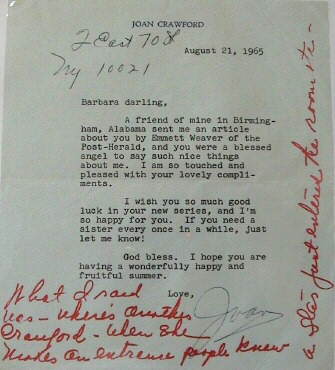 JOAN CRAWFORD
2 East 70 St
Ny 10021
August 21, 1965
Barbara darling,
A friend of mine in Birming-
ham, Alabama sent me an article
about you by Emmett Weaver of the
Post-Herald, and you were a blessed
angel to say such nice things
about me. I am so touched and
pleased with your lovely compli-
ments.
I wish you so much good
luck in your new series, and I'm
so happy for you. If you need a
sister every once in a while, just
let me know!
God bless. I hope you are
having a wonderfully happy and
fruitful summer.
Love,
Joan
What I said
was - Crawford - When She
makes an entrance people knew
a star just entered the room